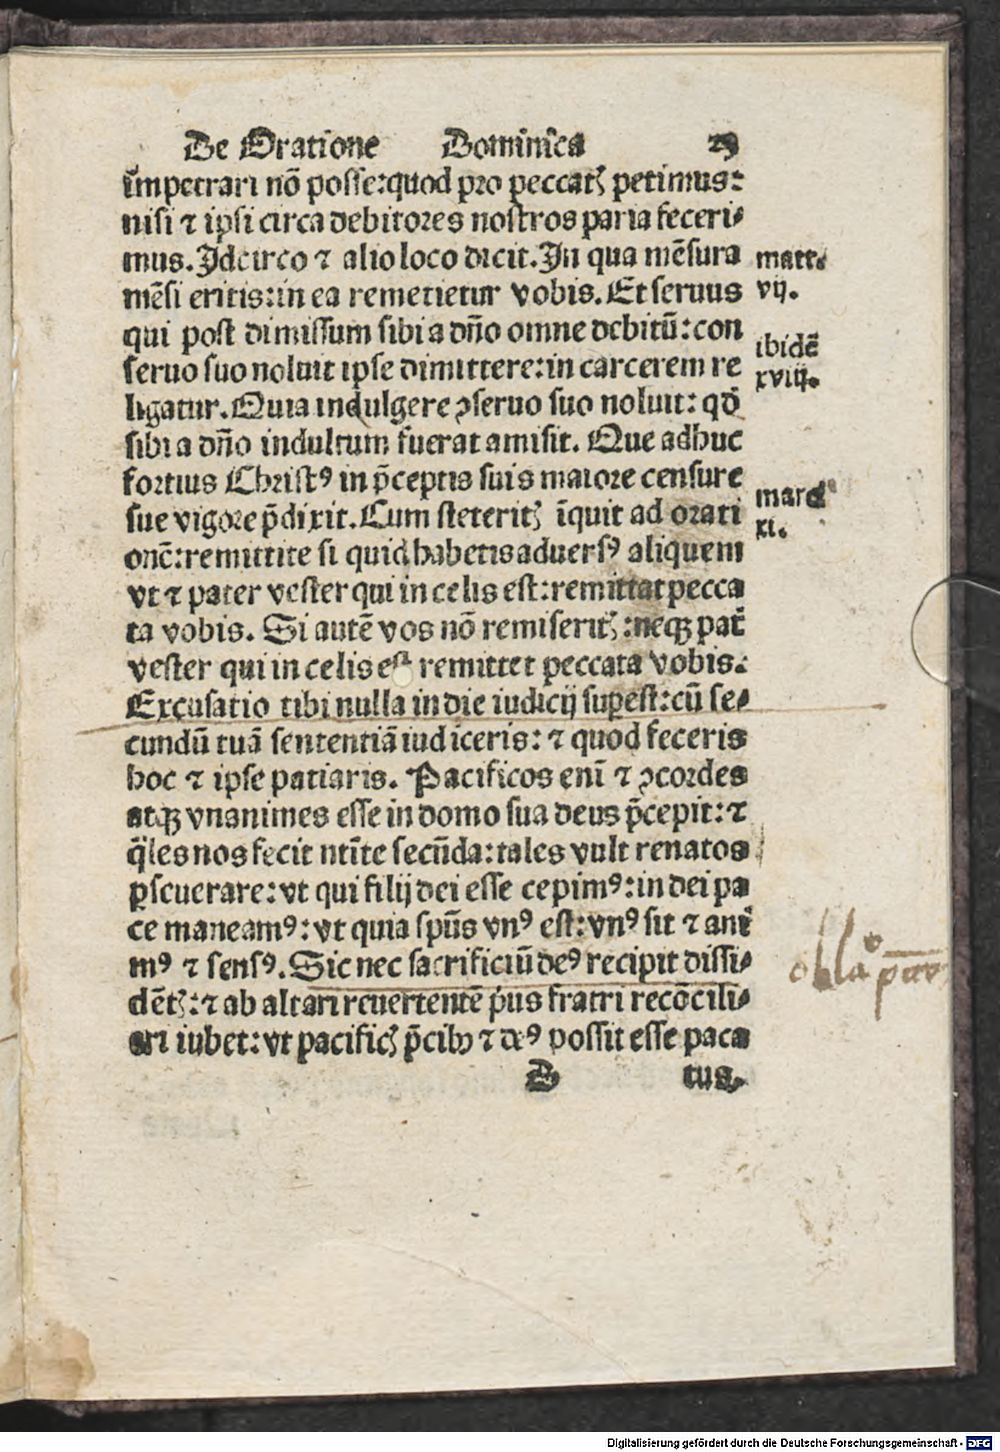 De Oratione Dominica 29
īmpetrari nō posse:quod pro peccatꝭ petimus:
nisi ⁊ ipsi circa debitores nostros paria feceri⸗
mus. Idcirco ⁊ alio loco dicit. In qua mēsura
mēsi eritis:in ea remetietur vobis. Et seruus
qui post dimissum sibi a dño omne debitū:con
seruo suo noluit ipse dimittere:in carcerem re
ligatur. Quia indulgere ꝯseruo suo noluit: qđ
sibi a dño indultum fuerat amisit. Que adhuc
fortius Christꝰ in p̄ceptis suis maiore censure
sue vigore p̄dixit. Cum steteritꝭ īquit ad orati
onē:remittite si quid habetis aduersꝰ aliquem
vt ⁊ pater vester qui in celis est:remittat pecca
ta vobis. Si autē vos nō remiseritꝭ:neqꝫ pat̄
vester qui in celis est remittet peccata vobis.
Excusatio tibi nulla in die iudicij suꝑest:cū se⸗
cundū tuā sententiā iudiceris: ⁊ quod feceris
hoc ⁊ ipse patiaris. Pacificos enī ⁊ ꝯcordes
atqꝫ vnanimes esse in domo sua deus p̄cepit:⁊
q̄les nos fecit ntīte secūda:tales vult renatos
ꝑseuerare:vt qui filij dei esse cepimꝰ:in dei pa
ce maneamꝰ:vt quia spūs vnꝰ est:vnꝰ sit ⁊ anī
mꝰ ⁊ sensꝰ. Sic nec sacrificiū deꝰ recipit dissi⸗
dētꝭ:⁊ ab altari reuertentē p̓us fratri recōcili⸗
ari iubet:vt pacificꝭ p̄cibꝰ ⁊ deꝰ possit esse paca
D tus.
matt.
vij.
ibidē
xviij.
marci
xi.
Digitalisierung gefördert durch die Deutsche Forschungsgemeinschaft - DFG